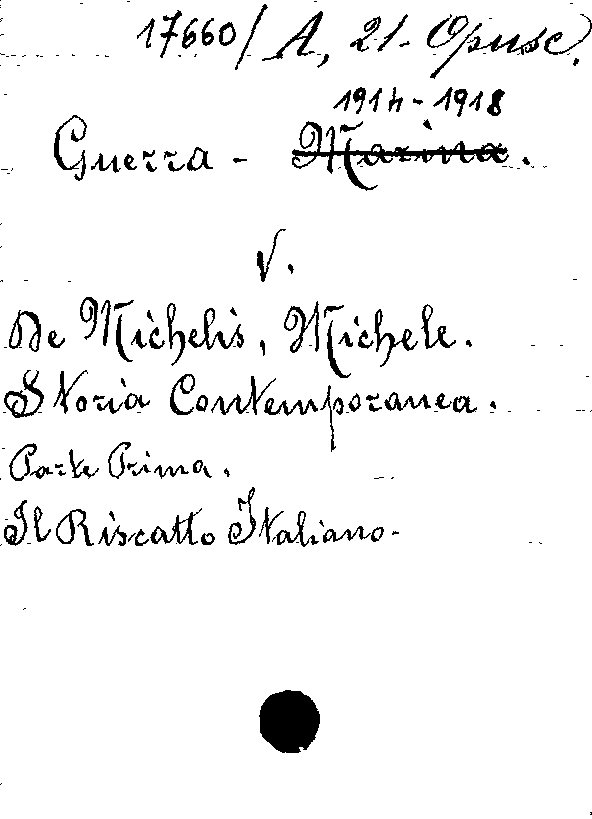 17660/A, 21. Opusc.
1914-1918
Guerra - Marina.
V.
De Michelis, Michele.
Storia Contemporanea.
Parte Prima.
Il Riscatto Italiano.